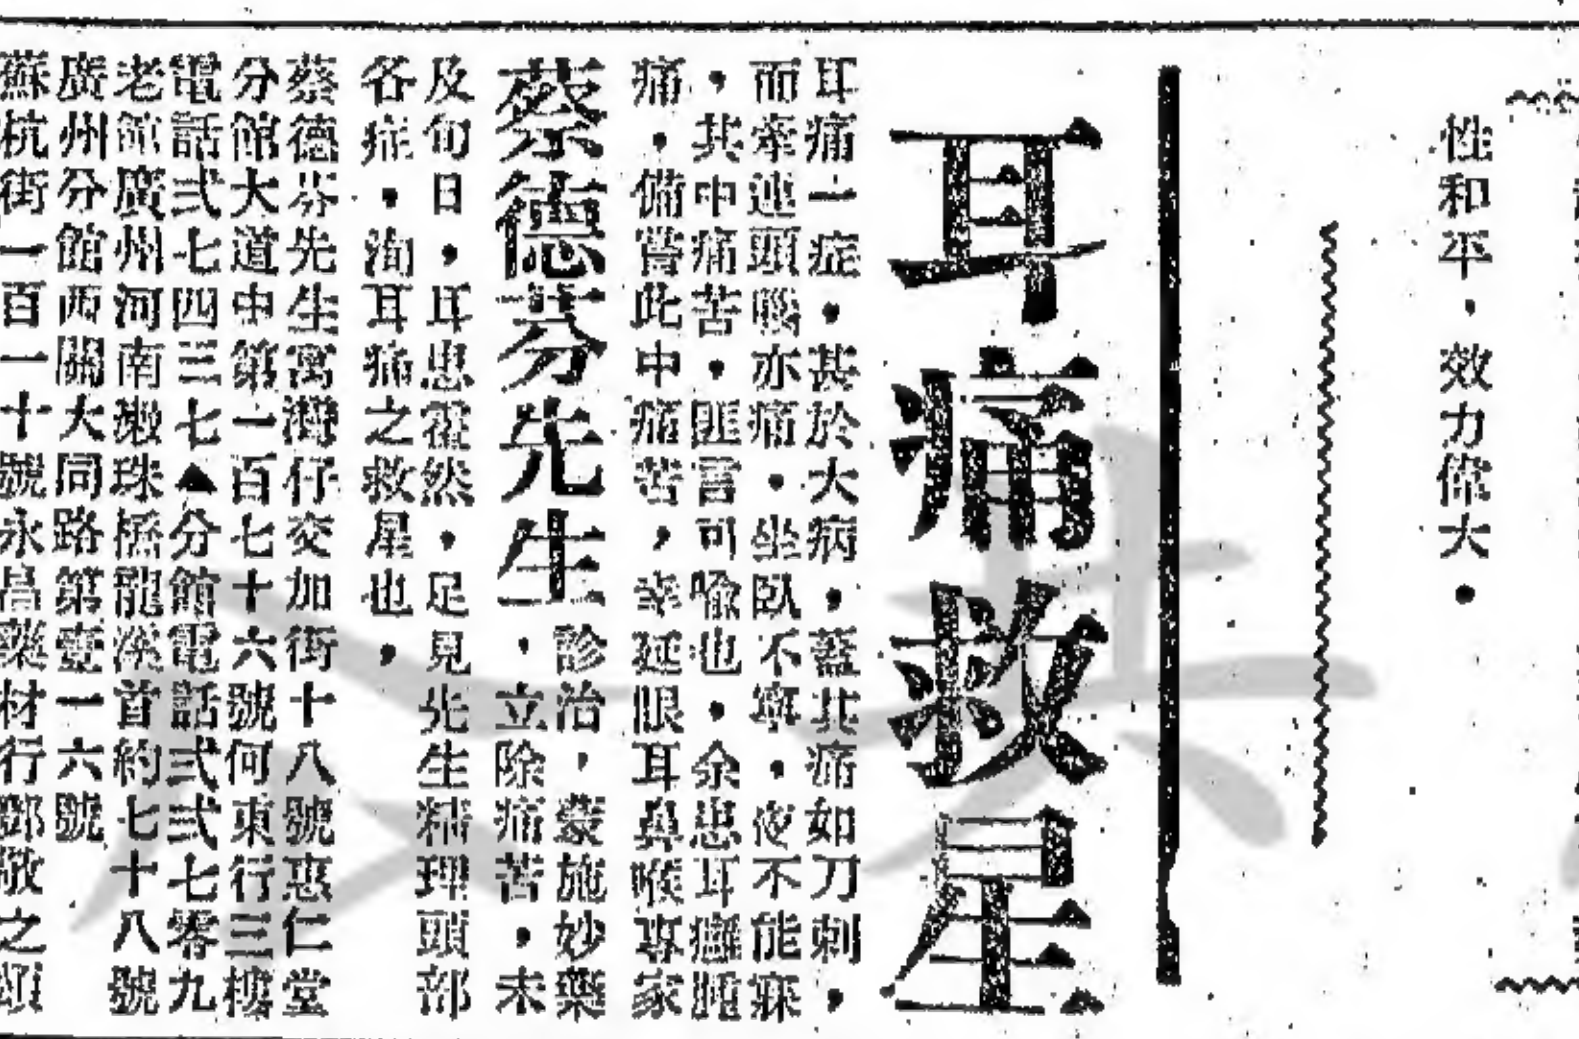 性和平，效力偉大．
耳痛救星
耳痛一症．甚於大病．蓋其痛如刀刺，
而牽連頭喉亦痛．坐臥不寧．夜不能寐
，其中痛苦．匪言可喻也．余患耳癰腫
痛．備嘗此中痛苦，幸延眼耳鼻喉專家
蔡德芬先生診治，蒙施妙藥
，立除痛苦．未
及旬日，耳患霍然．足見先生精理頭部
各症．洵耳痛之救星也，
蔡德芬先生寓灣仔交加街十八號惠仁堂
分館大道中第一百七十六號何東行三樓
電話弍七四三七▲分館電話弍弍七零九
老館廣州河南漱珠橋龍溪首約七十八號
廣州分館西關大同路第壹一六號
蘇杭街一百一十號永昌藥材行鄧敬之頌